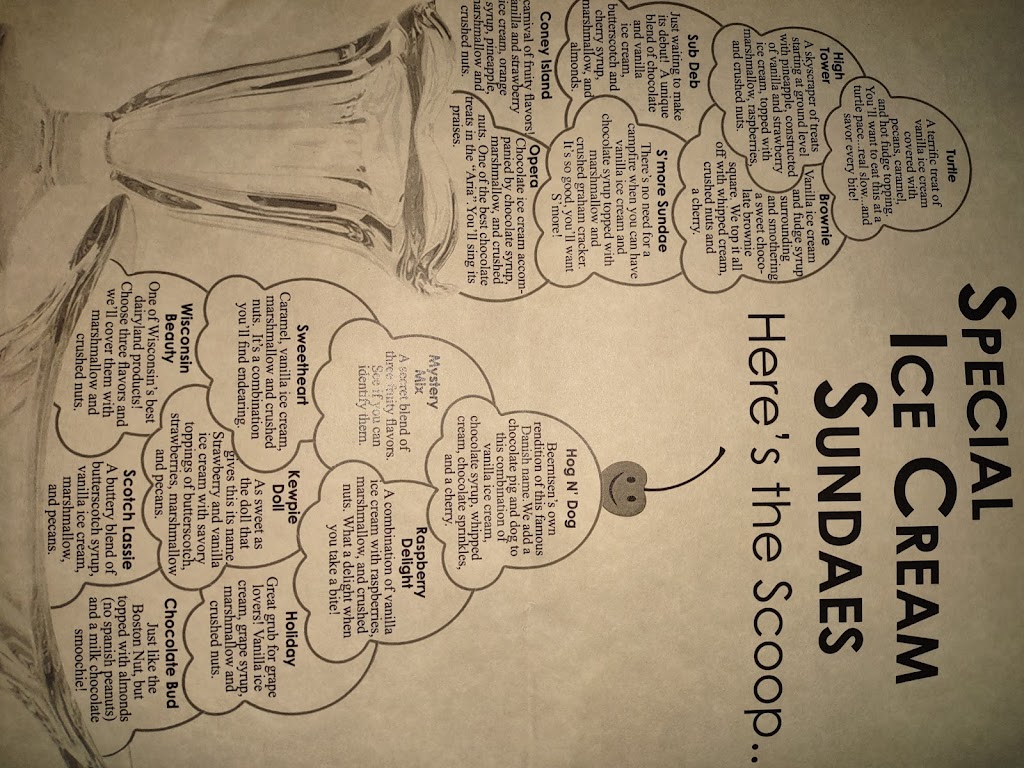 SPECIAL
ICE CREAM
SUNDAES
Here's the Scoop..
Turtle
A terrific treat of
vanilla ice cream
covered with
pecans, caramel,
and hot fudge topping.
You'll want to eat this at a
turtle pace...real slow...and
savor every bite!
High
Tower
A skyscraper of treats
starting at ground level
with pineapple, constructed
of vanilla and strawberry
ice cream, topped with
marshmallow, raspberries,
and crushed nuts.
Brownie
Vanilla ice cream
and fudge syrup
surrounding
and smothering
a sweet choco-
late brownie
square. We top it all
off with whipped cream,
crushed nuts and
a cherry.
Sub Deb
Just waiting to make
its debut! A unique
blend of chocolate
and vanilla
ice cream,
butterscotch and
cherry syrup,
marshmallow, and
almonds.
S'more Sundae
There's no need for a
campfire when you can have
vanilla ice cream and
chocolate syrup topped with
marshmallow and
crushed graham cracker.
It's so good, you'll want
S'more!
Coney Island
carnival of fruity flavors!
anilla and strawberry
ice cream, orange
syrup, pineapple,
marshmallow and
crushed nuts.
Opera
Chocolate ice cream accom-
panied by chocolate syrup,
marshmallow, and crushed
nuts. One of the best chocolate
treats in the "Aria" You'll sing its
praises.
Hog N' Dog
Beerntsen's own
rendition of this famous
Danish name. We add a
chocolate pig and dog to
this combination of
vanilla ice cream,
chocolate syrup, whipped
cream, chocolate sprinkles,
and a cherry.
Mystery
Mix
A secret blend of
three fruity flavors.
See if you can
identify them.
Raspberry
Delight
A combination of vanilla
ice cream with raspberries,
marshmallow, and crushed
nuts. What a delight when
you take a bite!
Sweetheart
Caramel, vanilla ice cream,
marshmallow and crushed
nuts. It's a combination
you'll find endearing.
Kewpie
Doll
As sweet as
the doll that
gives this its name.
Strawberry and vanilla
ice cream with savory
toppings of butterscotch,
strawberries, marshmallow
and pecans.
Holiday
Great grub for grape
lovers! Vanilla ice
cream, grape syrup,
marshmallow and
crushed nuts.
Wisconsin
Beauty
One of Wisconsin's best
dairyland products!
Choose three flavors and
we'll cover them with
marshmallow and
crushed nuts.
Scotch Lassie
A buttery blend of
butterscotch syrup,
vanilla ice cream,
marshmallow,
and pecans.
Chocolate Bud
Just like the
Boston Nut, but
topped with almonds
(no spanish peanuts)
and a milk chocolate
smoochie!